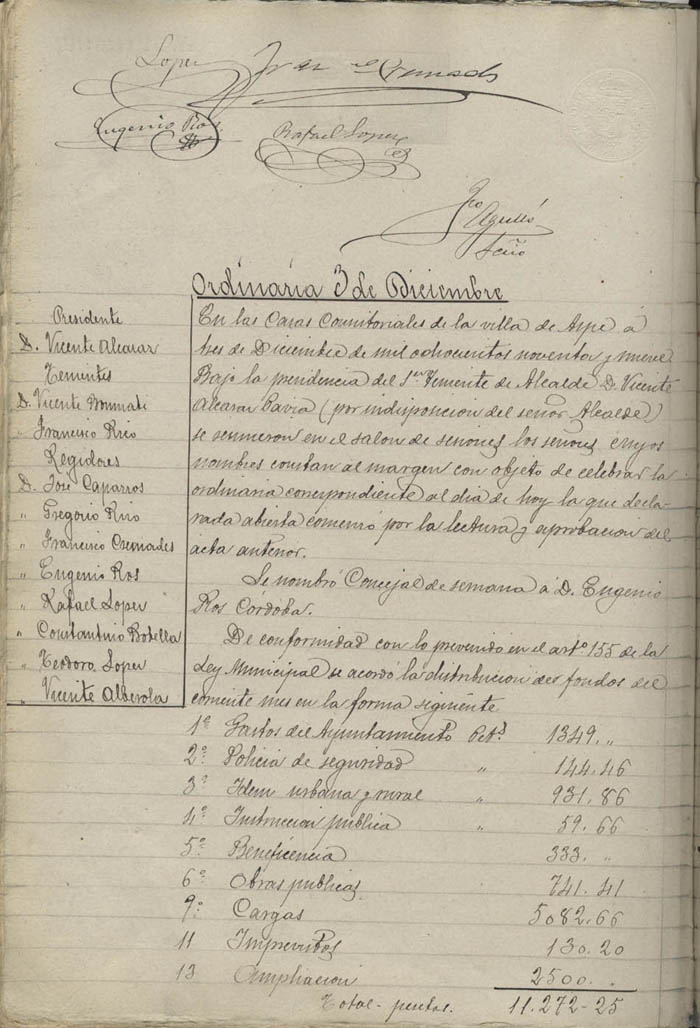 Lopez
Juan Cremades
Eugenio Ros
Rafael Lopez
Fco
Agulló
Scrio
Ordinaria 3 de Diciembre
Presidente
D. Vicente Alcaraz
Tenientes
D. Vicente Bonmati
" Francisco Rizo
Regidores
D. José Caparros
" Gregorio Rizo
" Francisco Cremades
" Eugenio Ros
" Rafael Lopez
" Constantino Botella
" Teodoro Lopez
" Vicente Alberola
En las Casas Consitoriales de la villa de Aspe á
tres de Diciembre de mil ochocientos noventa y nueve
Bajo la presidencia del 1er Temente de Alcalde D. Vicente
Alcaraz Pavia (por indisposicion del señor Alcalde)
se reunieron en el salon de sesiones los señores cuyos
nombres constan al margen con objeto de celebrar la
ordinaria correspondiente al dia de hoy la que decla-
rada abierta comenzó por la lectura y aprobacion del
acta anterior.
Se nombró Concejal de semana á D. Eugenio
Ros Córdoba.
De conformidad con lo prevenido en el artº 155 de la
Ley Municipal se acordó la distribucion des fondos del
corriente mes en la forma siguiente
1º Gastos del Ayuntamiento Pets. 1349. "
2º Policia de seguridad " 144.46
3º Idem urbana y rural " 931.86
4º Instruccion publica " 59.66
5º Beneficencia 333. "
6º Obras publicas 741.41
9º Cargas 5082.66
11 Imprevistos 130.20
13 Ampliacion 2500. .
Total- pesetas. 11.272-25